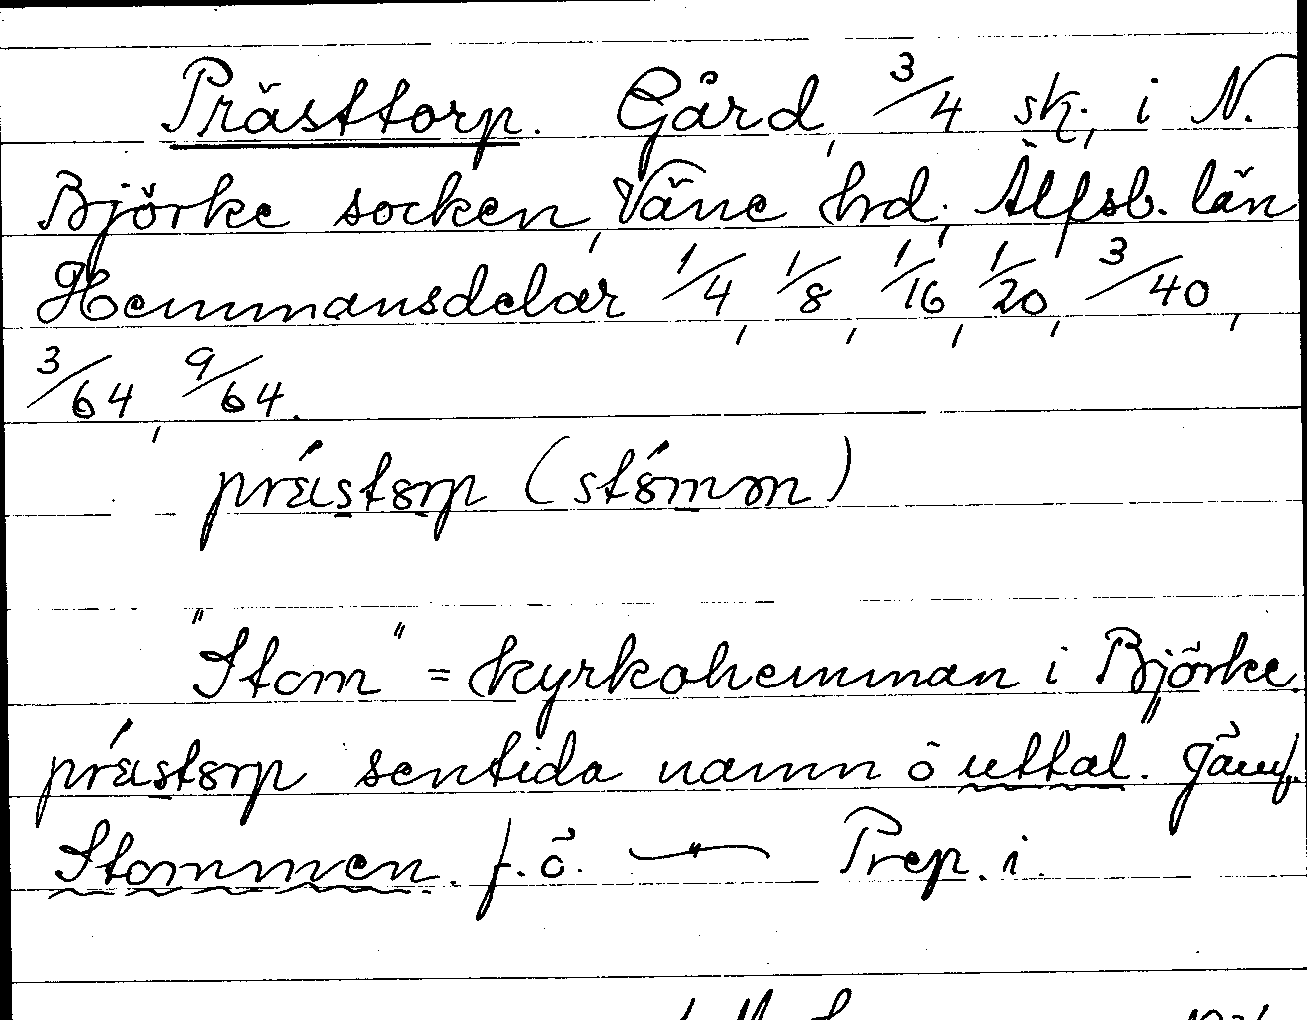 Prästtorp. Gård, 3/4 sk., i N.
Björke socken, Väne hrd., Älfsb. län
Hemmansdelar 1/4, 1/8, 1/16, 1/20, 3/40,
3/64, 9/64.
prástorp (stómm)
"Stom" = kyrkohemman i Björke.
prástorp sentida namn o uttal. Jämf.
Stommen. f.ö. — " — Prep. i.